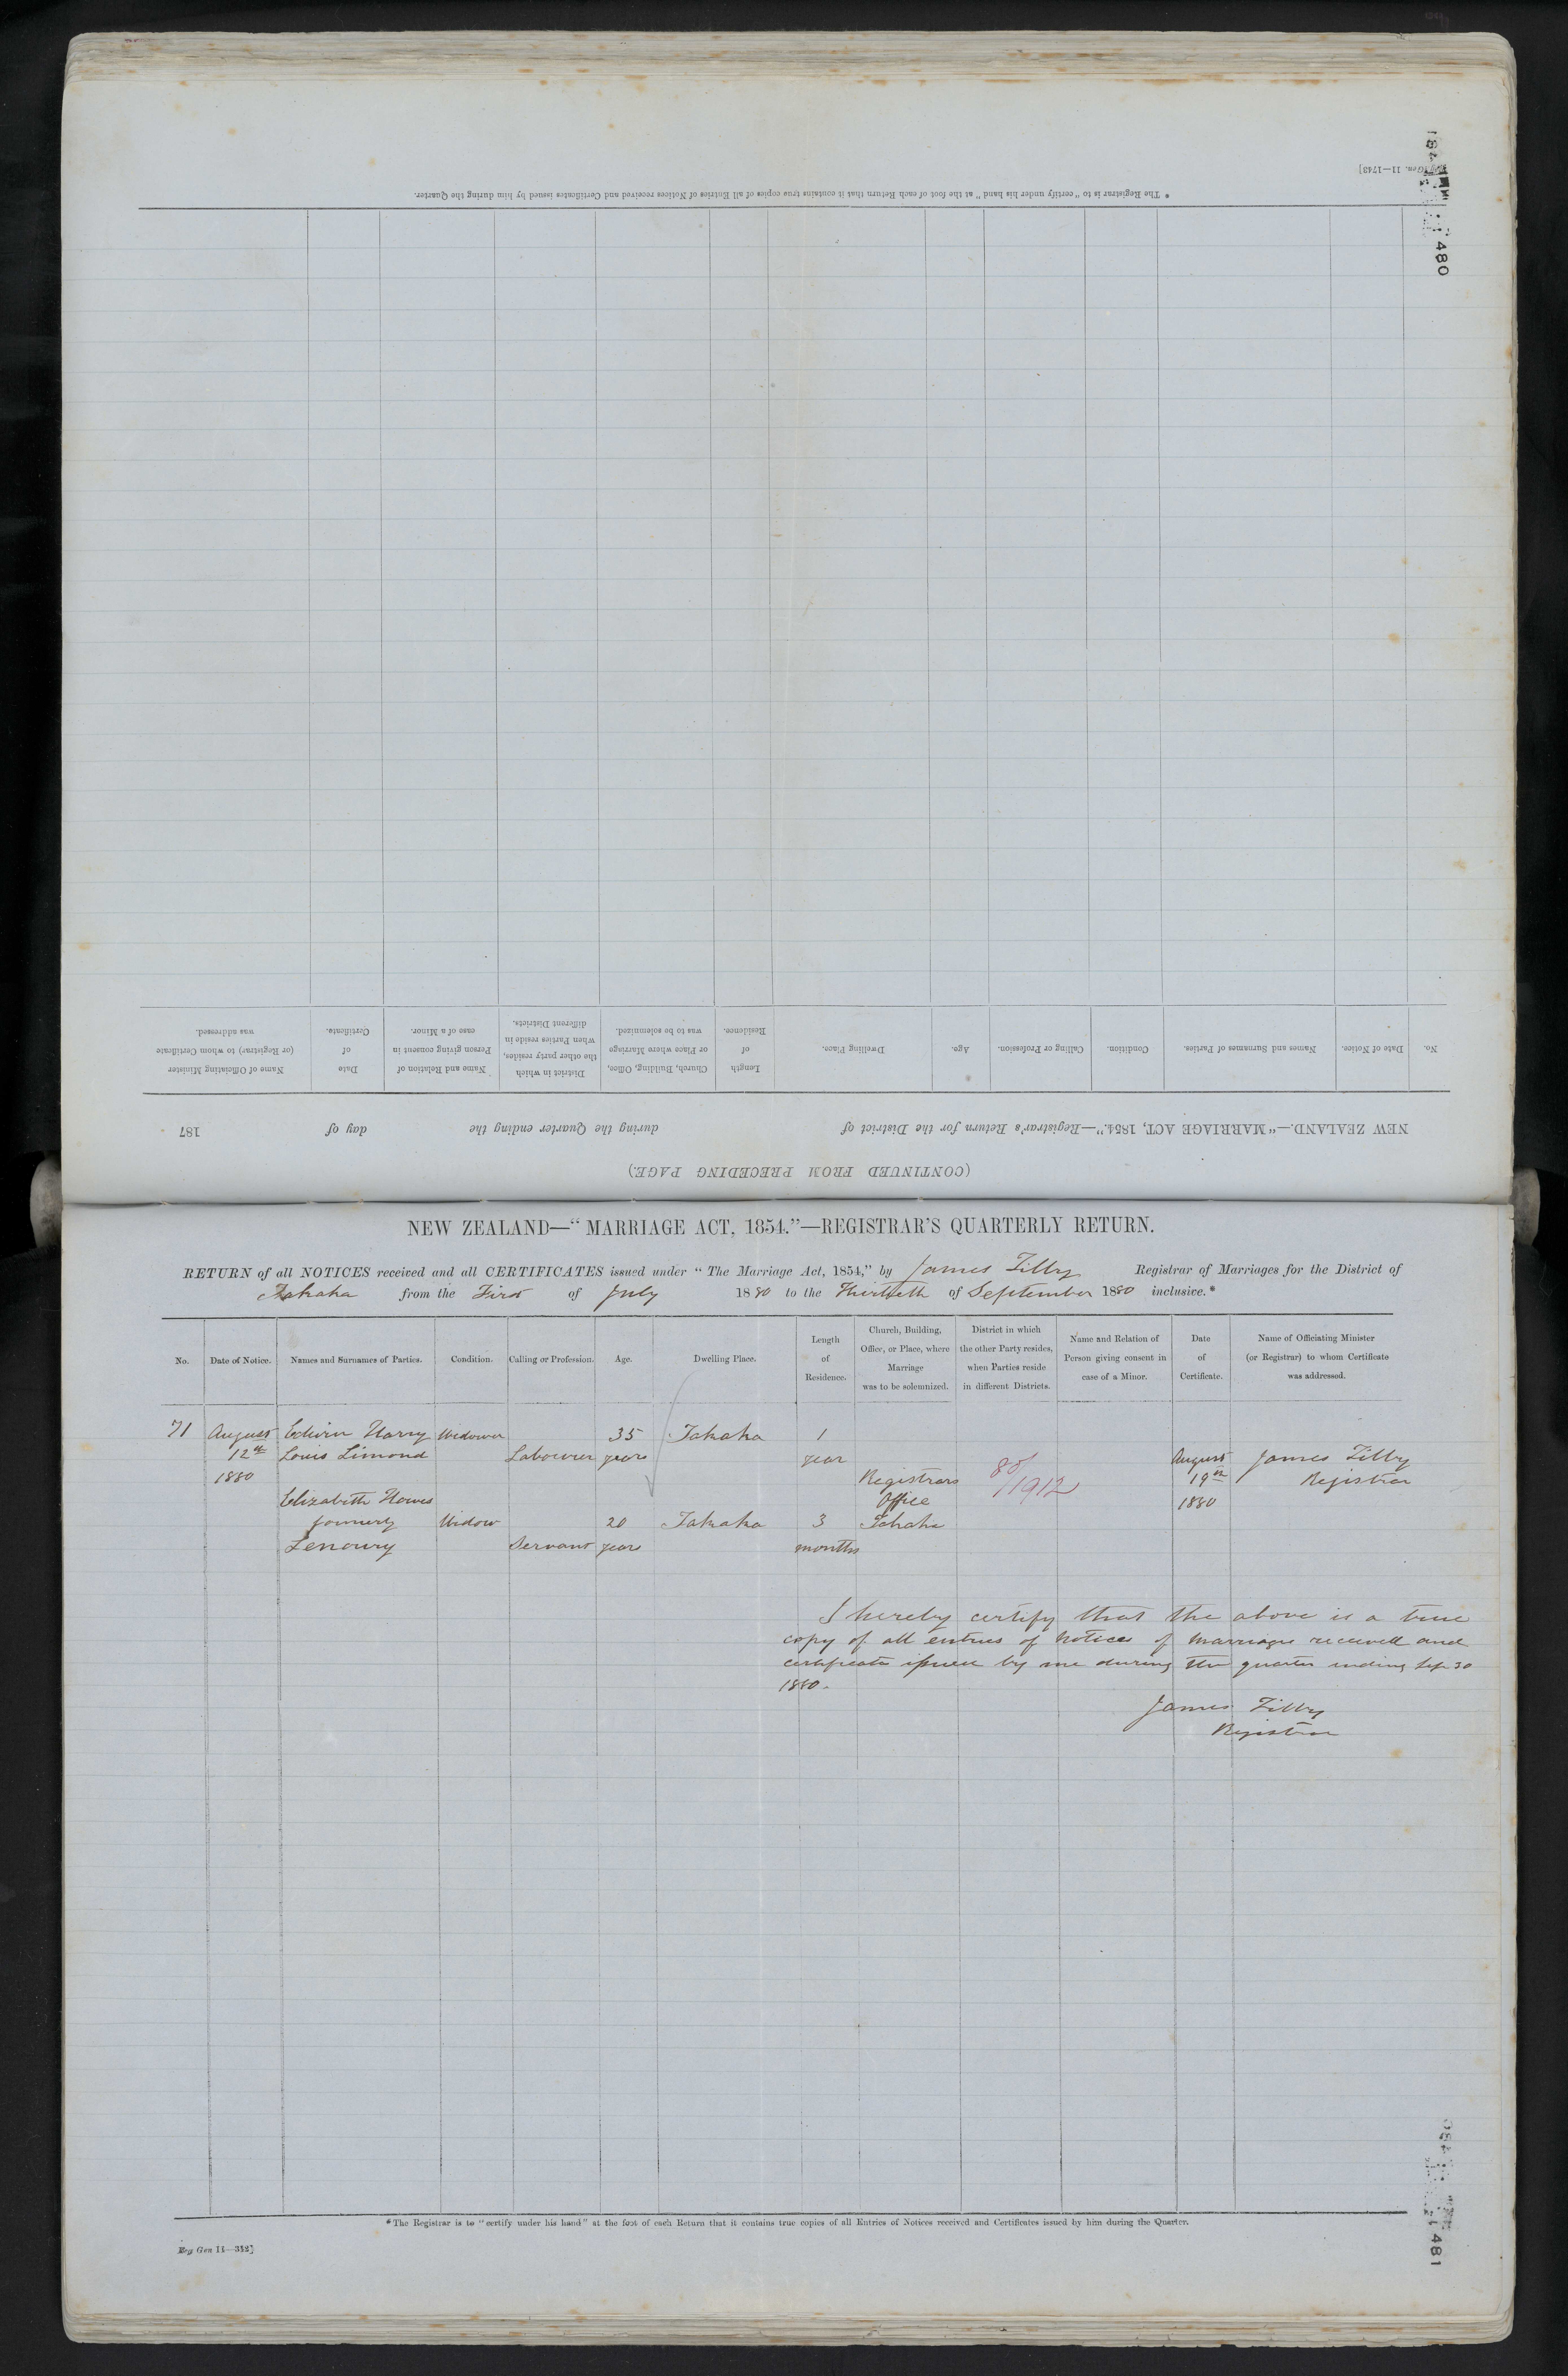 Reg. Gen. 11—1743]
480
* The Registrar is to "certify under his hand" at the foot of each Return that it contains true copies of all Entries of Notices received and Certificates issued by him during the Quarter.
(CONTINUED FROM PRECEDING PAGE.)
NEW ZEALAND.—"MARRIAGE ACT, 1854."—Registrar's Return for the District of during the Quarter ending the day of 187
No. Date of Notice. Names and Surnames of Parties. Condition. Calling or Profession. Age. Dwelling Place. Length of Residence. Church, Building, Office, or Place where Marriage was to be solemnized. District in which the other party resides, when Parties reside in different Districts. Name and Relation of Person giving consent in case of a Minor. Date of Certificate. Name of Officiating Minister (or Registrar) to whom Certificate was addressed.
NEW ZEALAND—"MARRIAGE ACT, 1854."—REGISTRAR'S QUARTERLY RETURN.
RETURN of all NOTICES received and all CERTIFICATES issued under "The Marriage Act, 1854," by James Tilby Registrar of Marriages for the District of
Takaka from the First of July 1880 to the Thirtieth of September 1880 inclusive.*
No. Date of Notice. Names and Surnames of Parties. Condition. Calling or Profession. Age. Dwelling Place. Length of Residence. Church, Building, Office, or Place, where Marriage was to be solemnized. District in which the other Party resides, when Parties reside in different Districts. Name and Relation of Person giving consent in case of a Minor. Date of Certificate. Name of Officiating Minister (or Registrar) to whom Certificate was addressed.
71 August Edwin Harry Widower 35 Takaka 1
12th Louis Limond Labourer years year August James Tilby
1880 Registrars 80/1912 19th Registrar
Elizabeth Howes Office 1880
formerly Widow 20 Takaka 3 Takaka
Lenoury Servant years months
I hereby certify that the above is a true
copy of all entries of notices of marriages received and
certificates issued by me during the quarter ending Sep 30
1880.
James Tilby
Registrar
* The Registrar is to "certify under his hand" at the foot of each Return that it contains true copies of all Entries of Notices received and Certificates issued by him during the Quarter.
Reg Gen 11—342]
481